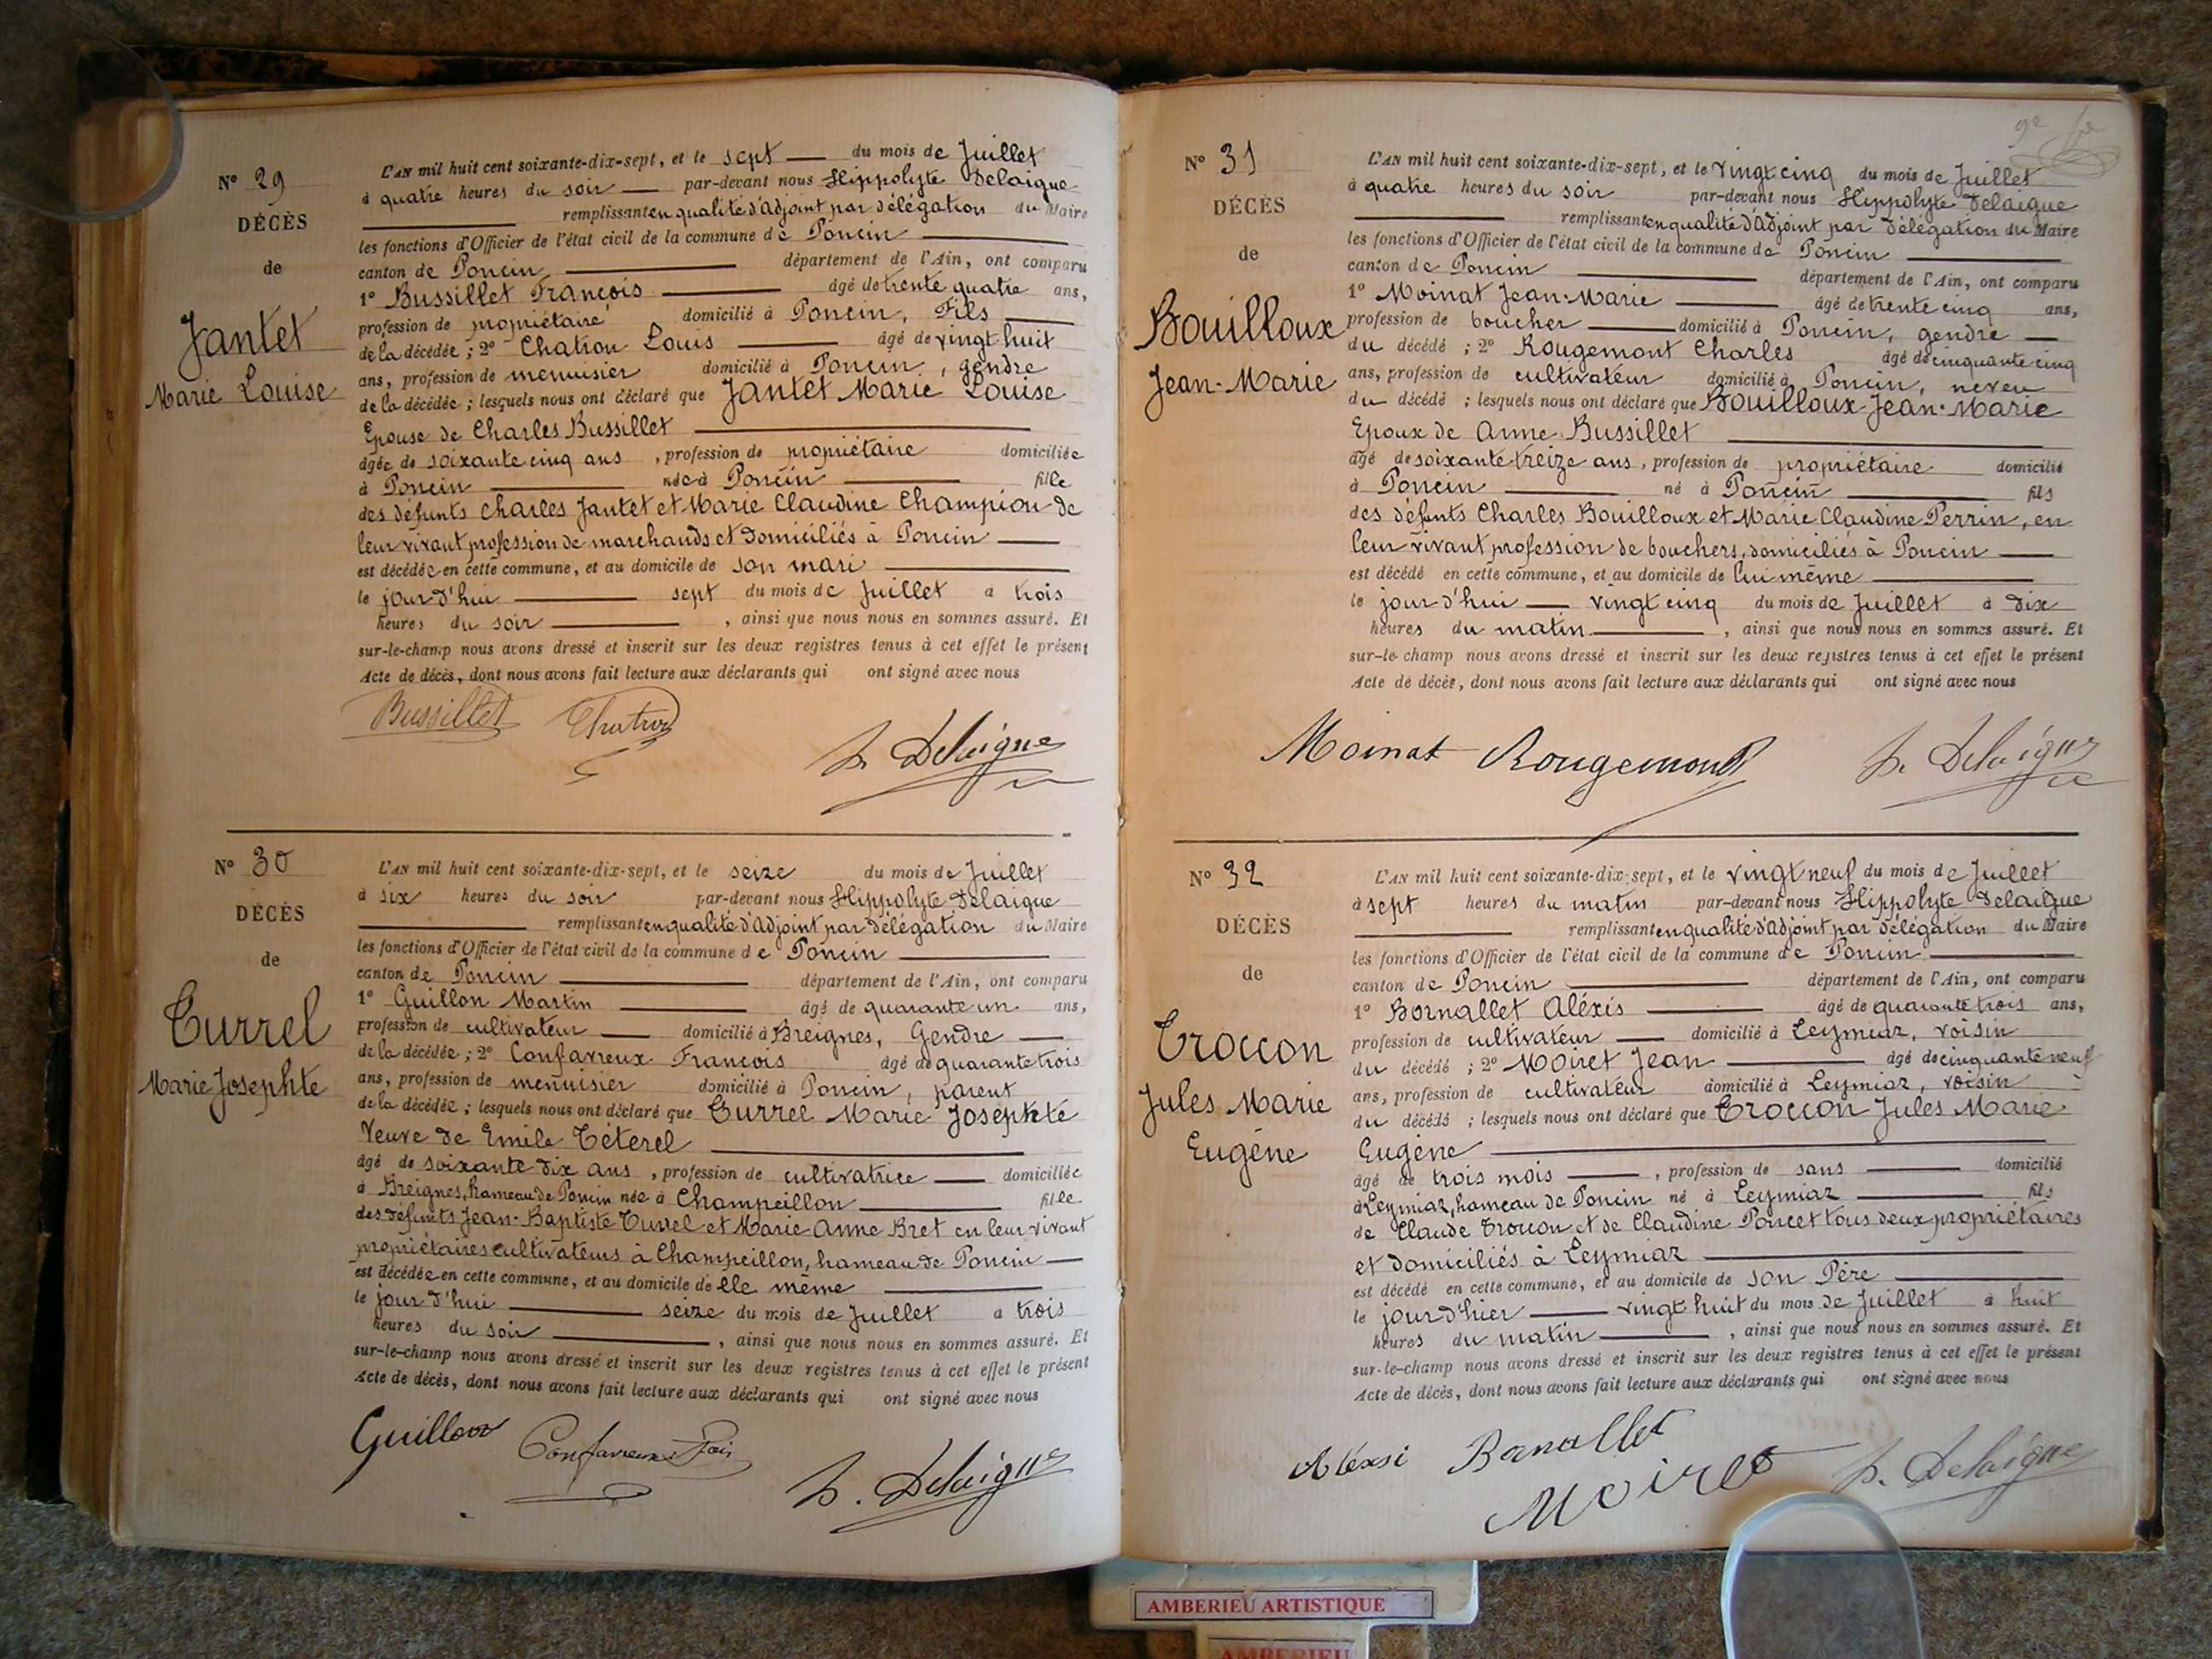 Nº 29
DÉCÈS
de
Jantet
Marie Louise
L'AN mil huit cent soixante-dix-sept, et le sept du mois de Juillet
à quatre heures du soir par-devant nous Hippolyte Delaigue
remplissant en qualité d'adjoint par délégation du Maire
les fonctions d'Officier de l'état civil de la commune de Poncin
canton de Poncin département de l'Ain, ont comparu
1º Bussillet François âgé de trente quatre ans,
profession de propriétaire domicilié à Poncin, Fils
de la décédée ; 2º Chatron Louis âgé de vingt huit
ans, profession de menuisier domicilié à Poncin, gendre
de la décédée ; lesquels nous ont déclaré que Jantet Marie Louise
Epouse de Charles Bussillet
âgée de soixante cinq ans, profession de propriétaire domiciliée
à Poncin née à Poncin fille
des défunts Charles Jantet et Marie Claudine Champion de
leur vivant profession de marchands et domiciliés à Poncin
est décédée en cette commune, et au domicile de son mari
le jour d'hui sept du mois de Juillet à trois
heures du soir, ainsi que nous nous en sommes assuré. Et
sur-le-champ nous avons dressé et inscrit sur les deux registres tenus à cet effet le présent
Acte de décès, dont nous avons fait lecture aux déclarants qui ont signé avec nous
Bussillet Chatron
h. Delaigue
Nº 30
DÉCÈS
de
Turrel
Marie Josephte
L'AN mil huit cent soixante-dix-sept, et le seize du mois de Juillet
à six heures du soir par-devant nous Hippolyte Delaigue
remplissant en qualité d'adjoint par délégation du Maire
les fonctions d'Officier de l'état civil de la commune de Poncin
canton de Poncin département de l'Ain, ont comparu
1º Guillon Martin âgé de quarante un ans,
profession de cultivateur domicilié à Breignes, Gendre
de la décédée ; 2º Confavreux François âgé de quarante trois
ans, profession de menuisier domicilié à Poncin, parent
de la décédée ; lesquels nous ont déclaré que Turrel Marie Josephte
Veuve de Emile Téterel
âgé de soixante dix ans, profession de cultivatrice domiciliée
à Breignes, hameau de Poncin née à Champeillon fille
des défunts Jean-Baptiste Turrel et Marie Anne Bret en leur vivant
propriétaires cultivateurs à Champeillon, hameau de Poncin
est décédée en cette commune, et au domicile de elle même
le jour d'hui seize du mois de Juillet à trois
heures du soir, ainsi que nous nous en sommes assuré. Et
sur-le-champ nous avons dressé et inscrit sur les deux registres tenus à cet effet le présent
Acte de décès, dont nous avons fait lecture aux déclarants qui ont signé avec nous
Guillon Confavreux Fois
h. Delaigue
Nº 31
DÉCÈS
de
Bouilloux
Jean-Marie
L'AN mil huit cent soixante-dix-sept, et le vingt cinq du mois de Juillet
à quatre heures du soir par-devant nous Hippolyte Delaigue
remplissant en qualité d'adjoint par délégation du Maire
les fonctions d'Officier de l'état civil de la commune de Poncin
canton de Poncin département de l'Ain, ont comparu
1º Moinat Jean-Marie âgé de trente cinq ans,
profession de boucher domicilié à Poncin, gendre
du décédé ; 2º Rougemont Charles âgé de cinquante cinq
ans, profession de cultivateur domicilié à Poncin, neveu
du décédé ; lesquels nous ont déclaré que Bouilloux Jean-Marie
Epoux de Anne Bussillet
âgé de soixante treize ans, profession de propriétaire domicilié
à Poncin né à Poncin fils
des défunts Charles Bouilloux et Marie Claudine Perrin, en
leur vivant profession de bouchers, domiciliés à Poncin
est décédé en cette commune, et au domicile de lui même
le jour d'hui vingt cinq du mois de Juillet à dix
heures du matin, ainsi que nous nous en sommes assuré. Et
sur-le-champ nous avons dressé et inscrit sur les deux registres tenus à cet effet le présent
Acte de décès, dont nous avons fait lecture aux déclarants qui ont signé avec nous
Moinat Rougemont h. Delaigue
Nº 32
DÉCÈS
de
Troccon
Jules Marie
Eugéne
L'AN mil huit cent soixante-dix-sept, et le vingt neuf du mois de Juillet
à sept heures du matin par-devant nous Hippolyte Delaigue
remplissant en qualité d'adjoint par délégation du Maire
les fonctions d'Officier de l'état civil de la commune de Poncin
canton de Poncin département de l'Ain, ont comparu
1º Bornallet Aléxis âgé de quarante trois ans,
profession de cultivateur domicilié à Leymiaz, voisin
du décédé ; 2º Moiret Jean âgé de cinquante neuf
ans, profession de cultivateur domicilié à Leymiaz, voisin
du décédé ; lesquels nous ont déclaré que Troccon Jules Marie
Eugéne
âgé de trois mois, profession de sans domicilié
à Leymiaz, hameau de Poncin né à Leymiaz fils
de Claude Troccon et de Claudine Poncet tous deux propriétaires
et domiciliés à Leymiaz
est décédé en cette commune, et au domicile de son Père
le jour d'hier vingt huit du mois de Juillet à huit
heures du matin, ainsi que nous nous en sommes assuré. Et
sur-le-champ nous avons dressé et inscrit sur les deux registres tenus à cet effet le présent
Acte de décès, dont nous avons fait lecture aux déclarants qui ont signé avec nous
Aléxsi Banallet
Moiret h. Delaigue
AMBERIEU ARTISTIQUE
AMBERIEU